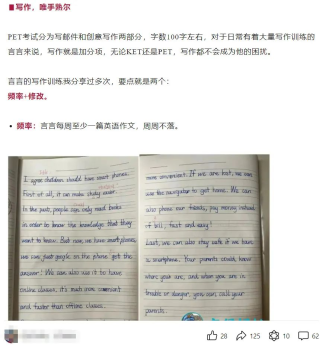 ■写作，唯手熟尔
PET考试分为写邮件和创意写作两部分，字数100字左右，对于日常有着大量写作训练的
言言来说，写作就是加分项，无论KET还是PET，写作都不会成为他的困扰。
言言的写作训练我分享过多次，要点就是两个：
频率+修改。
• 频率：言言每周至少一篇英语作文，周周不落。
I agree children should have smart phones.
First of all, it can make study easier.
In the past, people can only read books
in order to know the knowledge that they
want to know. But now, we have smart phones,
we can just google on the phone get the
answer. We can also use it to have
online classes, it's much more
and faster than offline classes.
more convenient. If we are lost, we can
use the navigator to get home. We can
also phone our friends, pay money instead
of bill, fast and easy!
Last, we can also stay safe if we have
a smartphone. Your parents should know
where you are, and when you are in
trouble or danger, you can call your
parents.
28 125 10 62